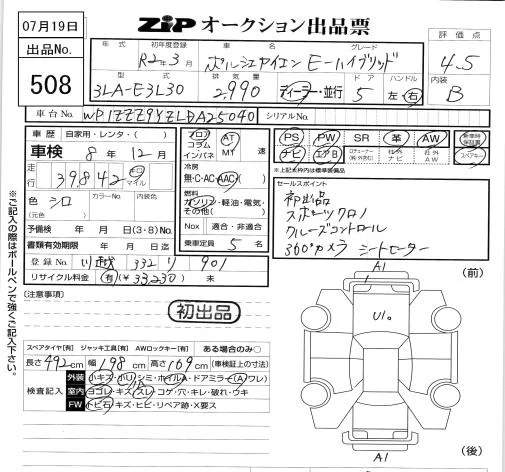 07月19日
ZiP オークション出品票
出品No.
508
年式 初年度登録 車名 グレード
R2年3月 ポルシェカイエン E-ハイブリッド
評価点
4.5
型式 排気量 ドア ハンドル
3LA-E3L30 2,990 ディーラー・並行 5 左・右
内装
B
車台No. WP1ZZZ9YZLDA25040 シリアルNo.
車歴 自家用・レンタ・( )
車検 8年12月
走行 39,842 キロ マイル
色 シロ カラーNo. 内装色
(元色)
予備検 年 月 日(3・8)No.
書類有効期限 年 月 日迄
登録No. 川越 332 り 901
リサイクル料金 有(¥33,230) 未
フロア コラム インパネ
AT MT 速
冷房
無・C・AC・AAC
燃料
ガソリン・軽油・電気・その他( )
Nox 適合・非適合
乗車定員 5 名
PS PW SR 革 AW
ナビ エアB 社外ナビ 社外AW
新車時保証書
スペアキー
*上記太枠内は標準装備品
セールスポイント
初出品
スポーツクロノ
クルーズコントロール
360°カメラ シートヒーター
※ご記入の際はボールペンで強くご記入下さい。
(注意事項)
初出品
スペアタイヤ[有] ジャッキ工具[有] AWロックキー[有] ある場合のみ○
長さ492cm 幅198cm 高さ169cm (車検証上の寸法)
検査記入
外装 小キズ・小U・シミ・ホイルA・ドアミラー(A・ワレ)
室内 ヨゴレ・キズ・スレ・コゲ・穴・キレ・破れ・ウキ
FW トビ石・キズ・ヒビ・リペア跡・X要ス
A1
(前)
U1。
A1
(後)